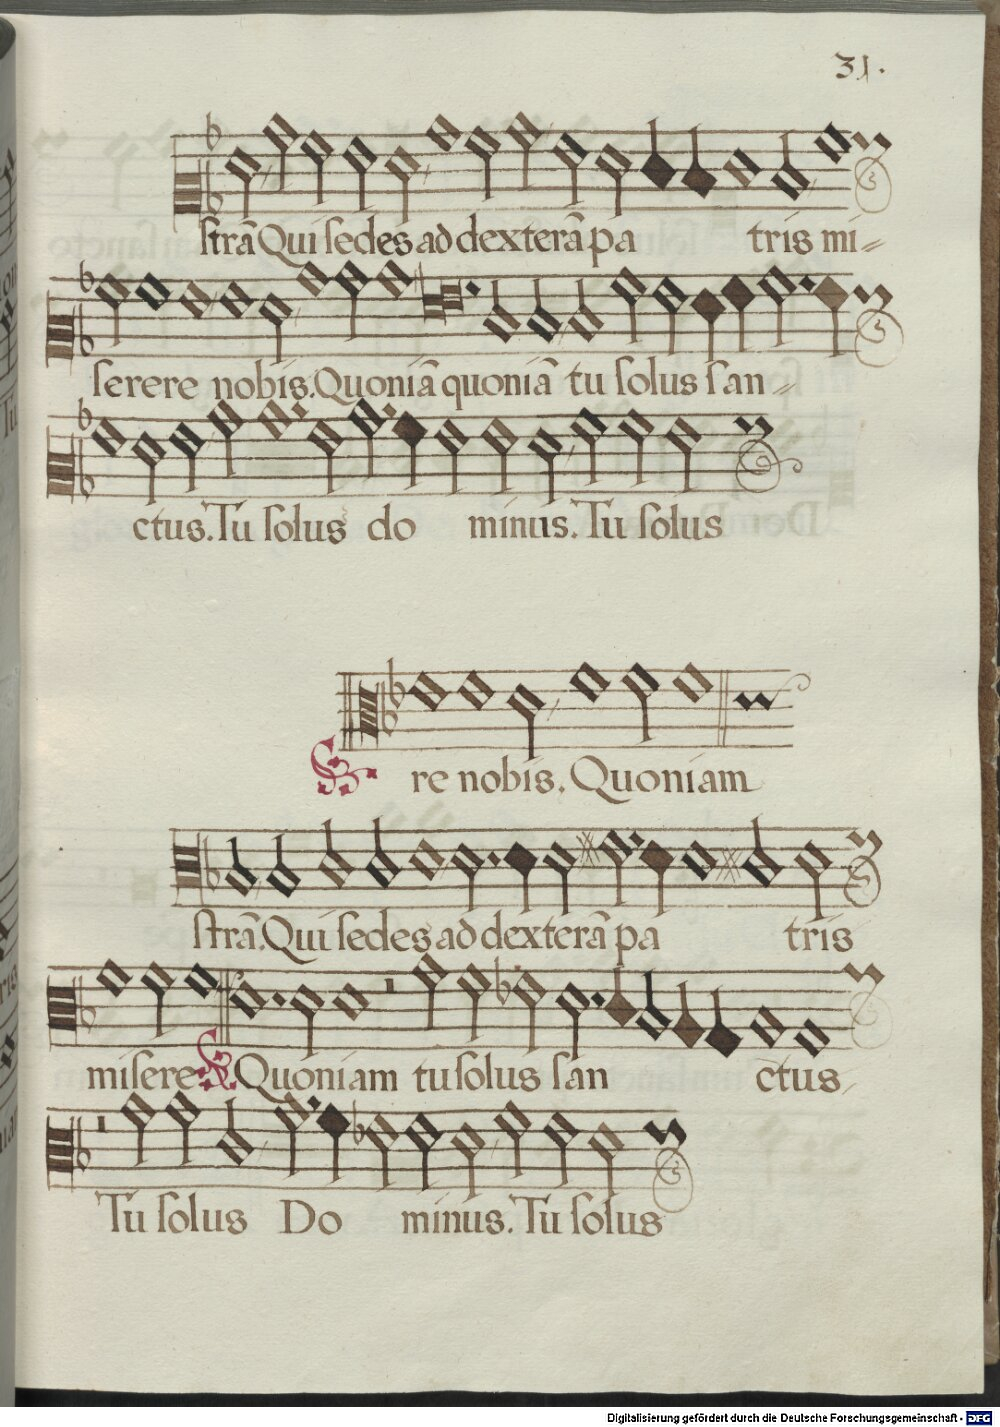 31.
strā Qui sedes ad dexterā pa tris mi=
serere nobis. Quoniā quoniā tu solus san=
ctus. Tu solus do minus. Tu solus
re nobis. Quoniam
strā. Qui sedes ad dexterā pa tris
misere Quoniam tu solus san ctus.
Tu solus Do minus. Tu solus
Digitalisierung gefördert durch die Deutsche Forschungsgemeinschaft - DFG